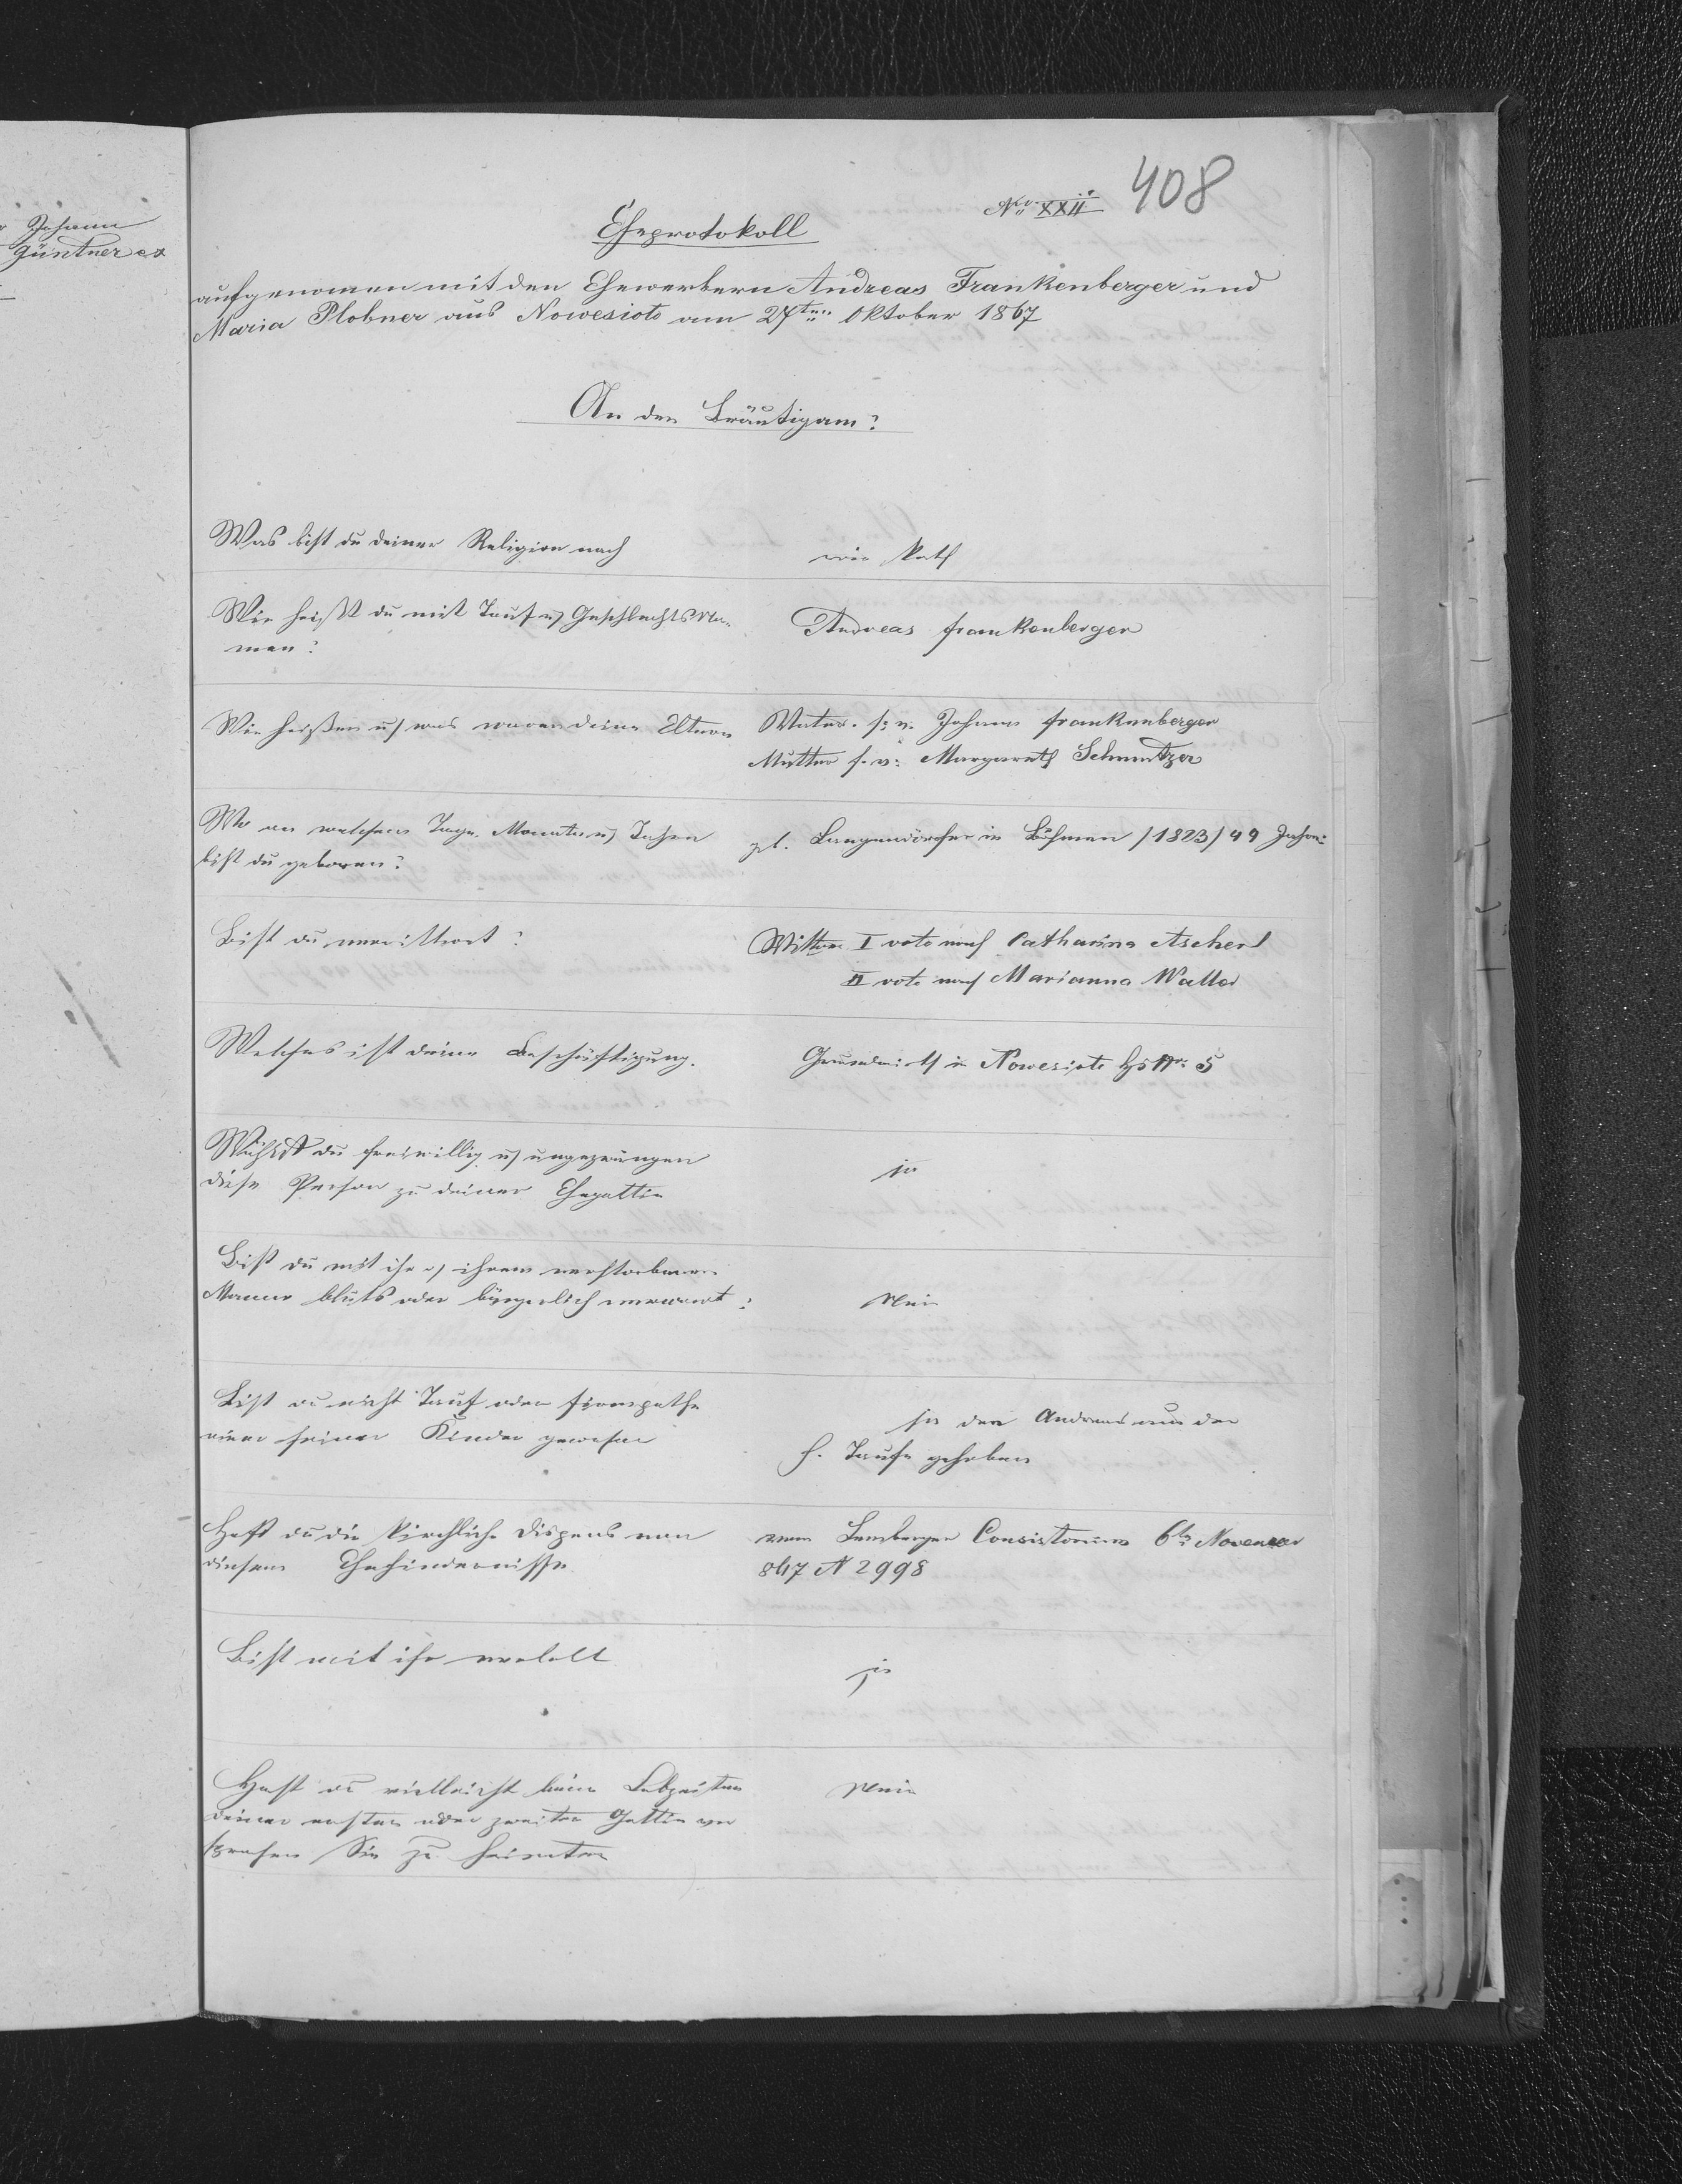 Johann
Güntner
408
No XXII
Eheprotokoll
aufgenomen mit den Ehewerbern Andreas Frankenberger und
Maria Plobner aus Nowesioło am 27ten Oktober 1867
An den Bräutigam?
Was bist du deiner Religion nach
röm kath
Wie heißt du mit Tauf u Geschlechtsna-
men?
Andreas Frankenberger
Wie heißen u was waren deine Eltern
Vater. s: v. Johann Frankenberger
Mutter s. v: Margareth Schmutzer
Wo an welchem Tage Monate u Jahre
bist du geboren?
Langendörfer in Böhmen /1823/ 44 Jahre
Bist du verwittwet?
Wittwer I voto nach Catharina Ascherl
II voto nach Marianna Walter
Welches ist deine Beschäftigung.
Grundwirth in Nowesioło Hs Nr: 5
Wählst du freiwillig u ungezwungen
diese Person zu deiner Ehegattin
ja
Bist du mit ihr u ihrem verstorbenen
Manne bluts oder bürgerlich verwandt?
Nein
Bist du nicht Tauf oder Firmpathe
einer seiner Kinder gewesen
ja den Andreas aus der
h. Taufe gehoben
Hast du die kirchliche Dispens von
diesem Ehehindernisse
vom Lemberger Consistorium 6ten November
867 N 2998
Bist mit ihr verlobt
ja
Hast du vielleicht beim Lebzeiten
deiner ersten oder zweiten Gattin ver
sprochen Sie zu heirathen
Nein